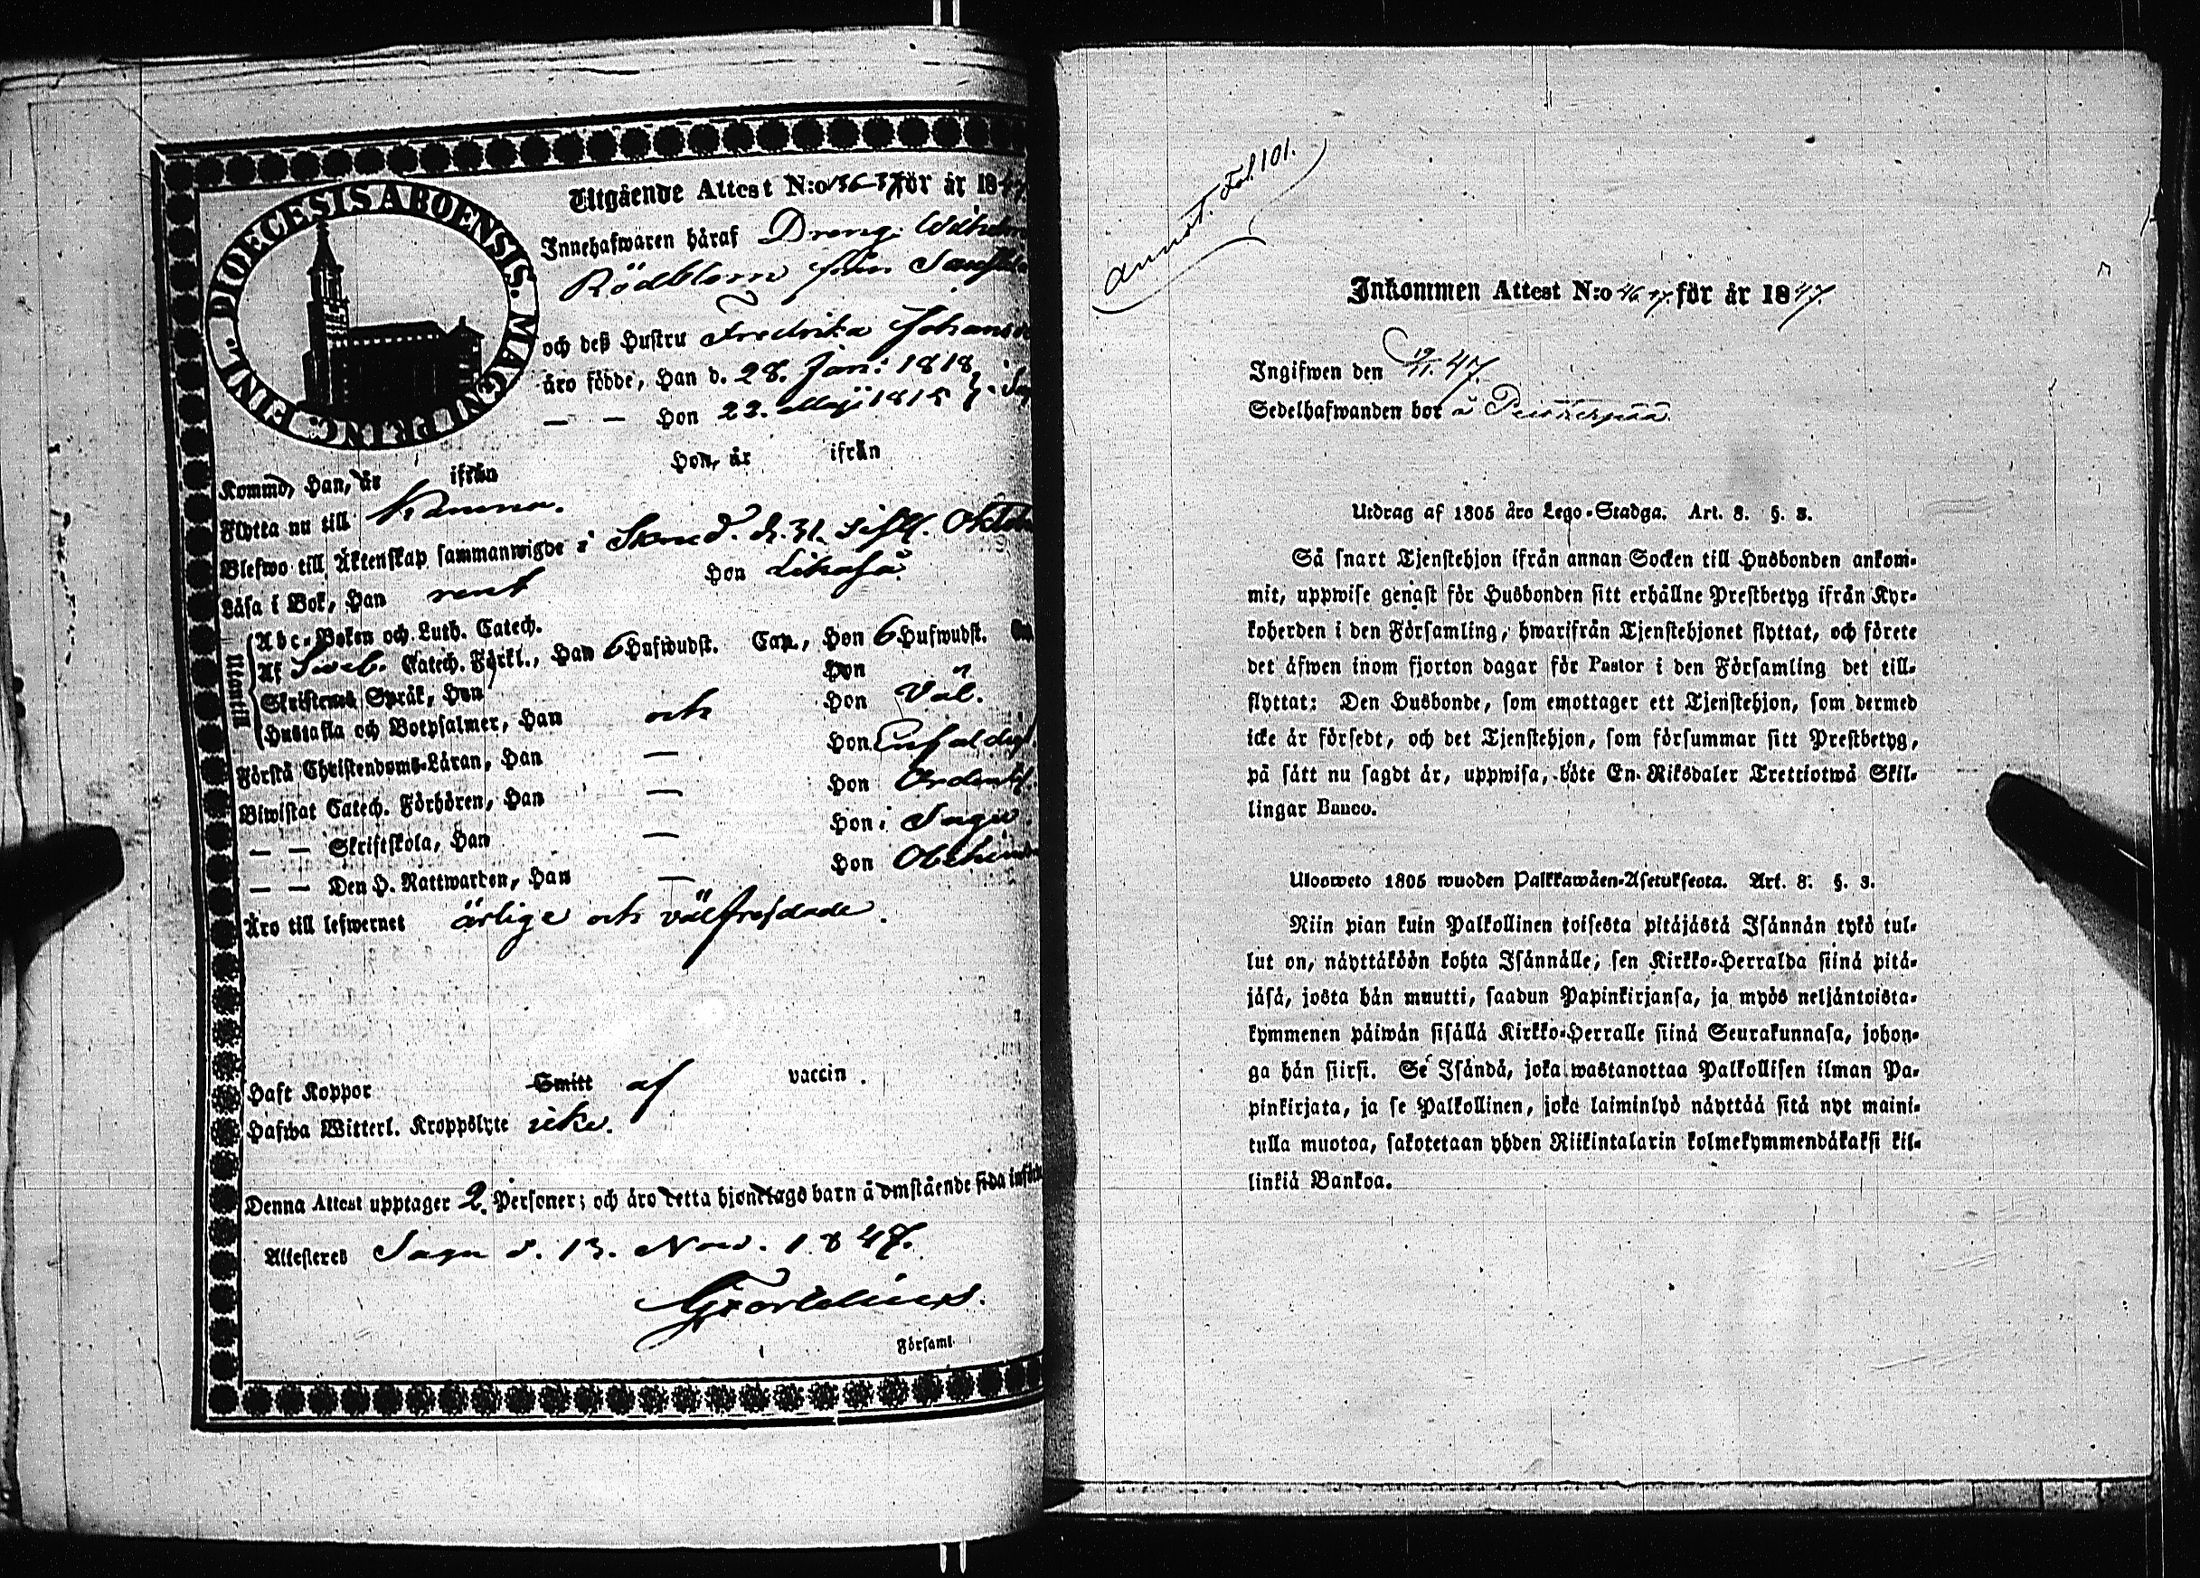 DIOECESIS ABOENSIS. MAGNI PRINC. FINL.
Utgående Attest N:o 36-37 för år 1847
Innehafwaren håraf Dreng. Wilhelm
Rödblom från
och deß Hustru Fredrika Johans
åro födde, Han d. 28. Jan: 1818
— — Hon 22. Maji 1815
Kommo, Han, år ifrån Hon, år ifrån
Flytta nu till Kumno.
Blefwo till Äktenskap sammanwigde i d. 31. sistl. Oktob
Låsa i Bok, Han rent Hon likaså
Utantill
Abc-Boken och Luth. Catech.
Af Sveb. Catech. Förkl., Han 6 Hufwudst. Cap., Hon 6 Hufwudst.
Skriftenes Språk, Han Hon
Hustafla och Botpsalmer, Han och Hon Väl.
Förstå Christendoms-Låran, Han — Hon Enfaldigt.
Biwistat Catech. Förhören, Han — Hon Ordentl.
— — Skriftskola, Han — Hon i Sagu.
— — Den H. Nattwarden, Han — Hon Obehindr
Äro till lefwernet ärlige och välfrejdade.
Haft Koppor Smitt af vaccin.
Hafwa Witterl. Kroppslyte icke.
Denna Attest upptager 2. Personer; och åro detta hjonelags barn å omstående sida införde
Attesteres Sagu d. 13. Nov. 1847.
Församl.
Annot. Fol. 101.
Inkommen Attest N:o 46 47. för år 1847.
Ingifwen den 19/11 47.
Sedelhafwanden bor å
Utdrag af 1805 års Lego-Stadga. Art. 8. §. 3.
Så snart Tjenstehjon ifrån annan Socken till Husbonden ankom-
mit, uppwise genast för Husbonden sitt erhållne Prestbetyg ifrån Kyr-
koherden i den Församling, hwarifrån Tjenstehjonet flyttat, och förete
det åfwen inom fjorton dagar för Pastor i den Församling det till-
flyttat: Den Husbonde, som emottager ett Tjenstehjon, som dermed
icke år försedt, och det Tjenstehjon, som försummar sitt Prestbetyg,
på sått nu sagdt år, uppwisa, böte En Riksdaler Trettiotwå Skil-
lingar Banco.
Uloosweto 1805 wuoden Palkkawåen-Asetuksesta. Art. 8. §. 3.
Niin pian kuin Palkollinen toisesta pitåjåstå Isånnån tykö tul-
lut on, nåyttåköön kohta Isånnålle, sen Kirkko-Herralda siinå pitå-
jåså, josta hån muutti, saadun Papinkirjansa, ja myös neljåntoista-
kymmenen påiwån sisållå Kirkko-Herralle siinå Seurakunnasa, johon-
ga hån siirsi. Se Isåndå, joka wastanottaa Palkollisen ilman Pa-
pinkirjata, ja se Palkollinen, joka laiminlyö nåyttåå sitå nyt maini-
tulla muotoa, sakotetaan yhden Riikintalarin kolmekymmendåkaksi kil-
linkiå Bankoa.